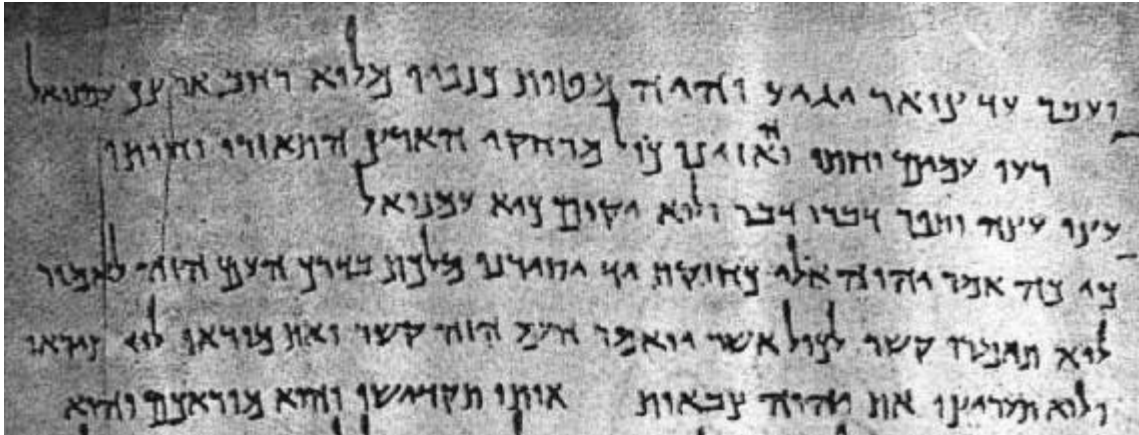 ועבר עד צואר יגיע והיה מטות כנפיו מלוא רחב ארצך עמנואל
רעו עמים וחתו והאזינו כול מרחקי הארץ התאזרו וחותו
עוצו עצה ותפר דברו דבר ולוא יקום כיא עמנואל
כי כוה אמר יהוה אלי כחזקת יד יסירנו מלכת בדרך העם הזה לאמור
לוא תאמרון קשר לכול אשר יואמר העם הזה קשר ואת מוראו לוא תיראו
ולוא תעריצו את יהוה צבאות אותו תקדישו והוא מוראכם והוא